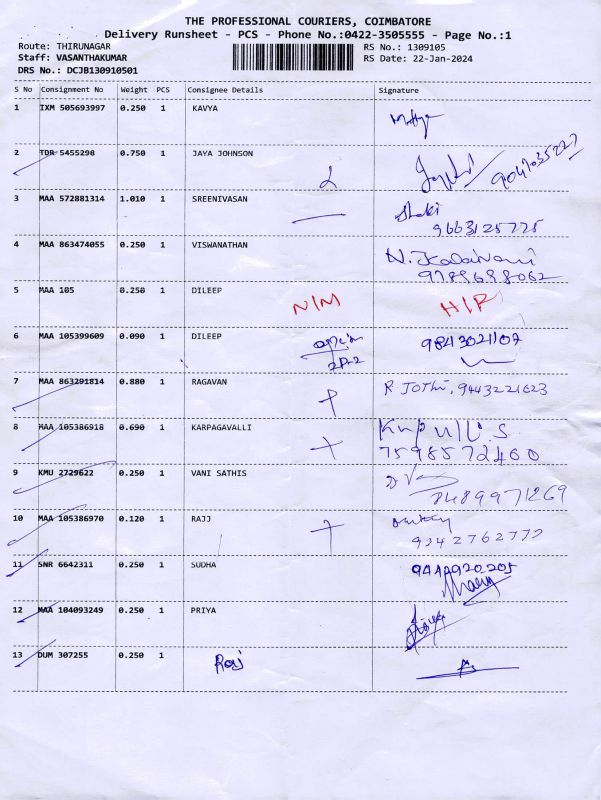 THE PROFESSIONAL COURIERS, COIMBATORE
Delivery Runsheet - PCS - Phone No.:0422-3505555 - Page No.:1
Route: THIRUNAGAR RS No.: 1309105
Staff: VASANTHAKUMAR RS Date: 22-Jan-2024
DRS No.: DCJB130910501
S No Consignment No Weight PCS Consignee Details Signature
1 IXM 505693997 0.250 1 KAVYA
2 TDR 5455298 0.750 1 JAYA JOHNSON
3 MAA 572881314 1.010 1 SREENIVASAN
9663125775
4 MAA 863474055 0.250 1 VISWANATHAN N. Kalaivani
9789698062
5 MAA 105 0.250 1 DILEEP N/M H/R
6 MAA 105399609 0.090 1 DILEEP 9843021107
7 MAA 863291814 0.880 1 RAGAVAN R JOTHI, 9443221623
8 MAA 105386918 0.690 1 KARPAGAVALLI
7598572460
9 KMU 2729622 0.250 1 VANI SATHIS
8489971269
10 MAA 105386970 0.120 1 RAJJ
9342762772
11 SNR 6642311 0.250 1 SUDHA 9442920205
12 MAA 104093249 0.250 1 PRIYA
13 DUM 307255 0.250 1 Raj